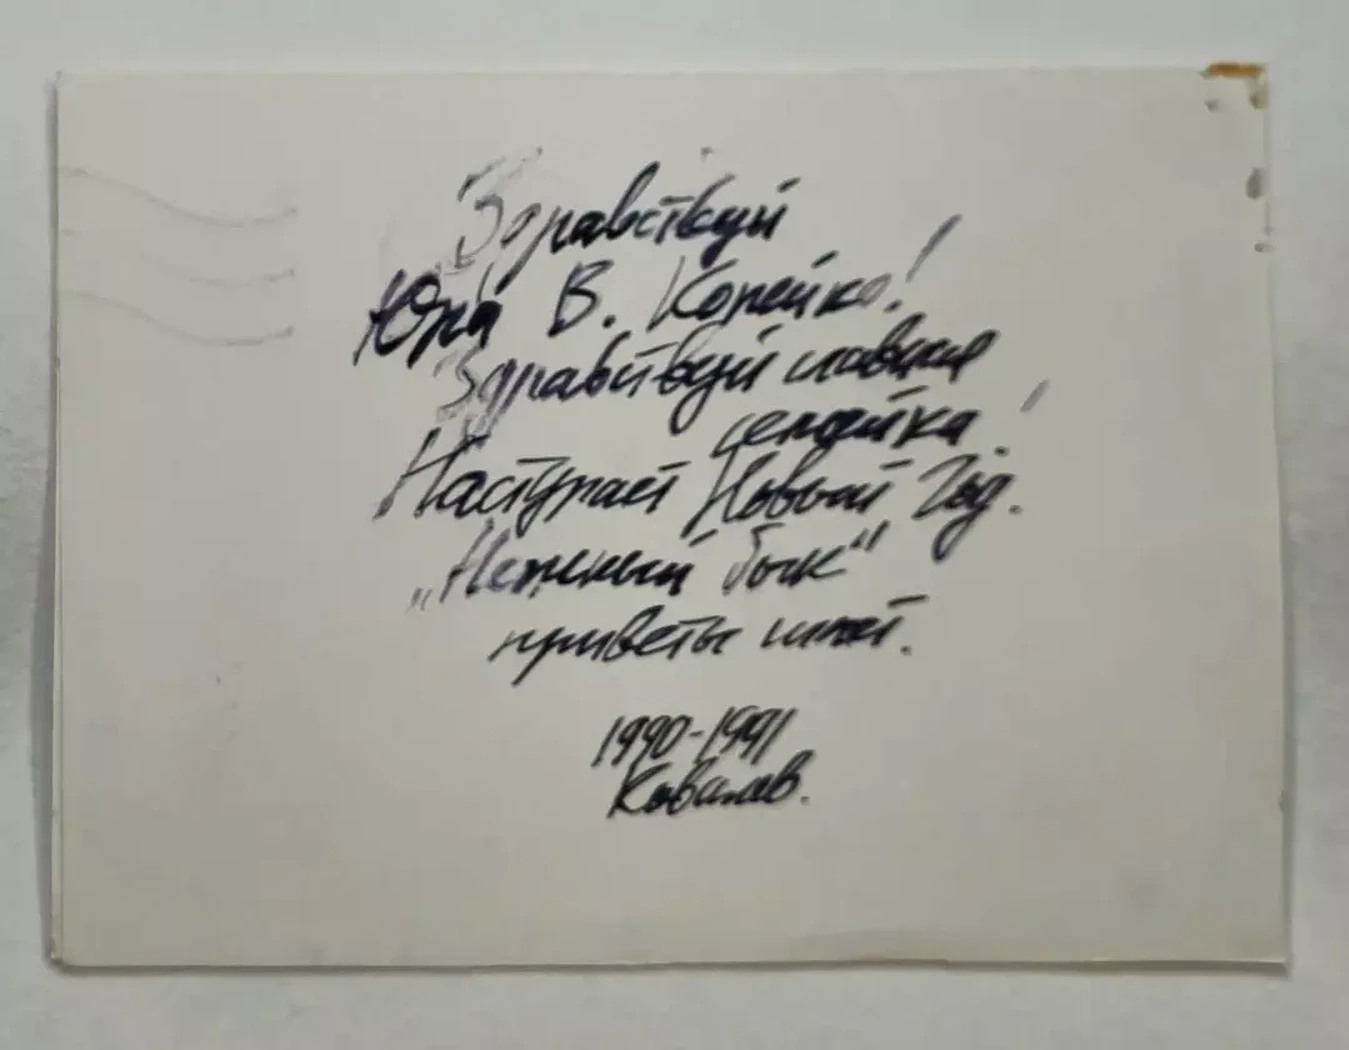 Здравствуй
Юра В. Копейко!
Здравствуй славная
семейка!
Наступает Новый Год.
„Нежный бык"
приветы шлёт.
1990-1991
Ковалев.